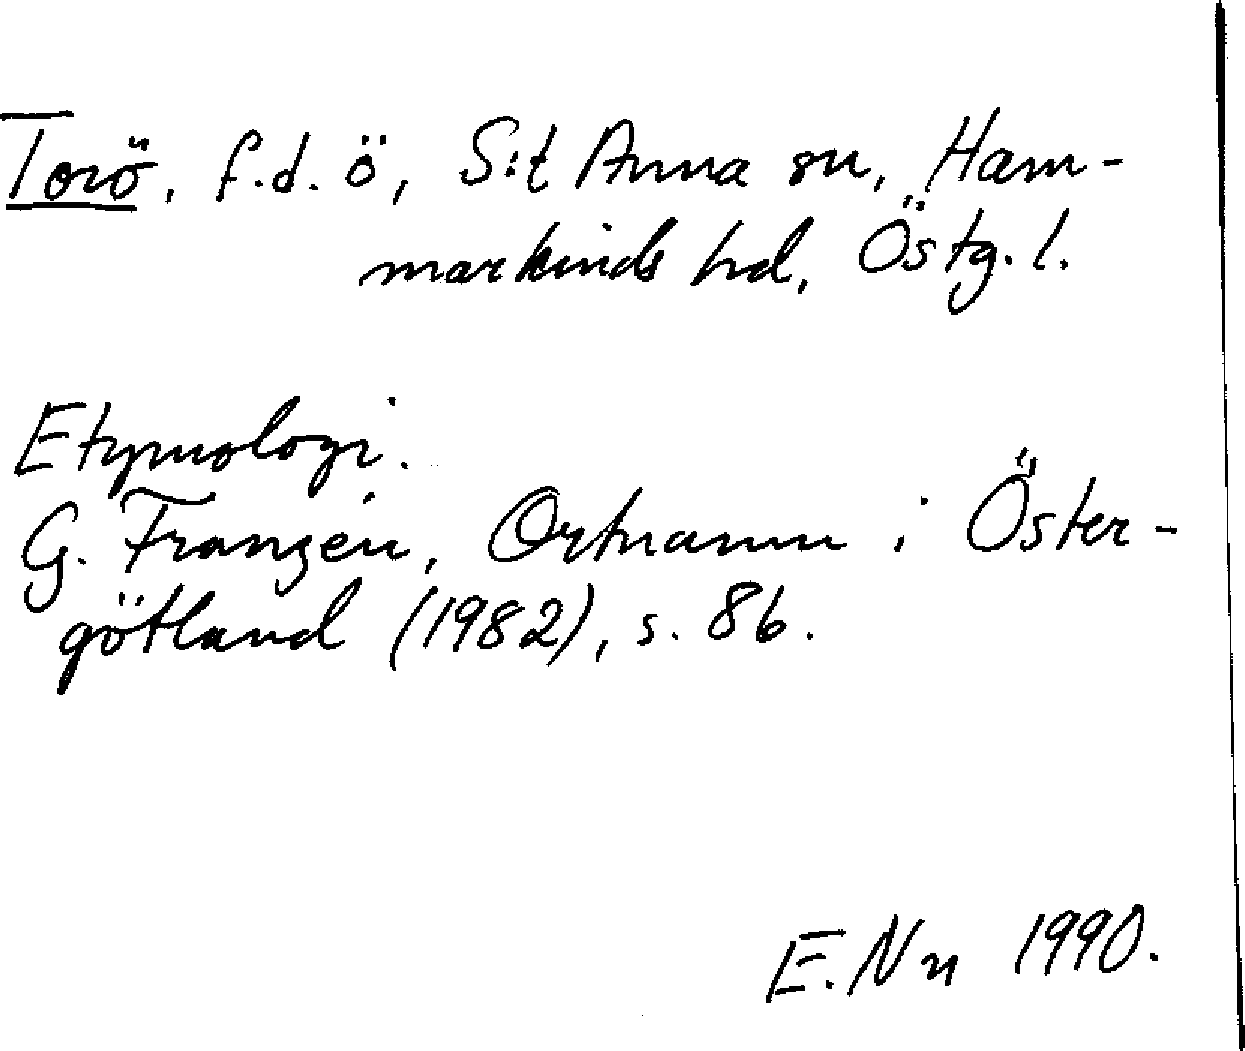 Torö, f.d. ö, S:t Anna sn, Ham-
markinds hd, Östg. l.
Etymologi.
G. Franzén, Ortnamn i Öster-
götland (1982), s. 86.
E. Nn 1990.